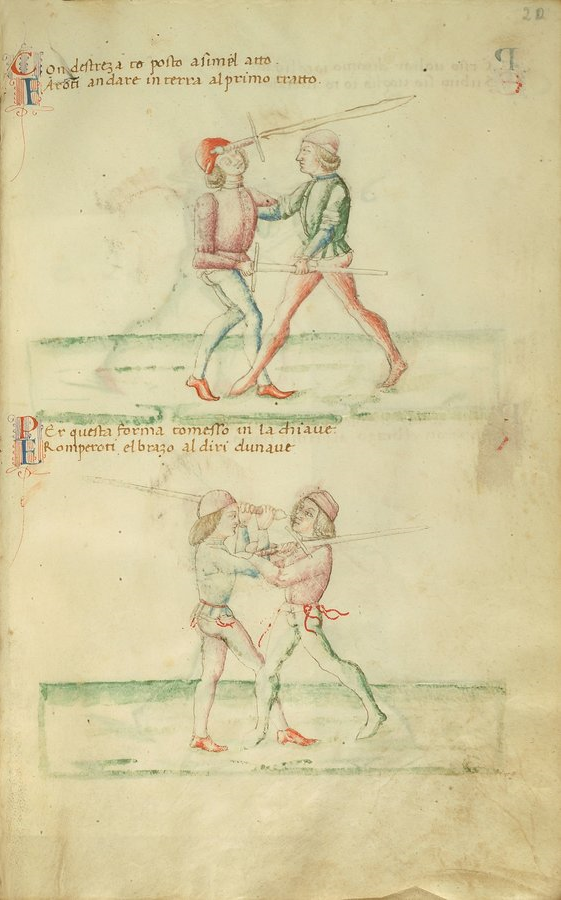 20
COn destreza to posto asimel atto.
FAroti andare in terra al primo tratto.
PEr questa forma tomesso in la chiaue:
ROmperoti elbrazo al diri dunaue